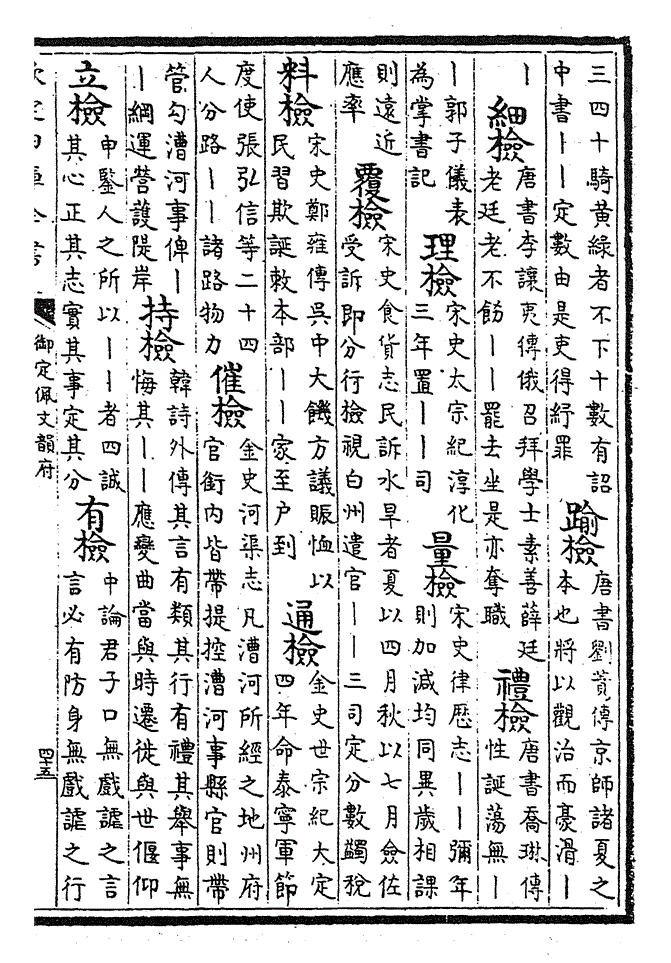 三四十騎黄緑者不下十數有詔
中書丨丨定數由是吏得紓罪
踰檢
唐書劉蕡傳京師諸夏之
本也將以觀治而豪滑丨
丨
細檢
唐書李讓夷傳俄召拜學士素善薛廷
老廷老不飭丨丨罷去坐是亦奪職
禮檢
唐書喬琳傳
性誕蕩無丨
丨郭子儀表
為掌書記
理檢
宋史太宗紀淳化
三年置丨丨司
量檢
宋史律歴志丨丨彌年
則加減均同異歲相課
則遠近
應率
覆檢
宋史食貨志民訴水旱者夏以四月秋以七月僉佐
受訴即分行檢視白州遣官丨丨三司定分數蠲稅
料檢
宋史鄭雍傳吳中大饑方議賑恤以
民習欺誕敕本部丨丨家至户到
通檢
金史世宗紀大定
四年命泰寧軍節
度使張弘信等二十四
人分路丨丨諸路物力
催檢
金史河渠志凡漕河所經之地州府
官銜内皆帶提控漕河事縣官則帶
管勾漕河事俾丨
丨綱運營護隄岸
持檢
韓詩外傳其言有類其行有禮其舉事無
悔其丨丨應變曲當與時遷徙與世偃仰
立檢
申鑒人之所以丨丨者四誠
其心正其志實其事定其分
有檢
中論君子口無戲謔之言
言必有防身無戲謔之行
欽定四庫全書
御定佩文韻府
四十五